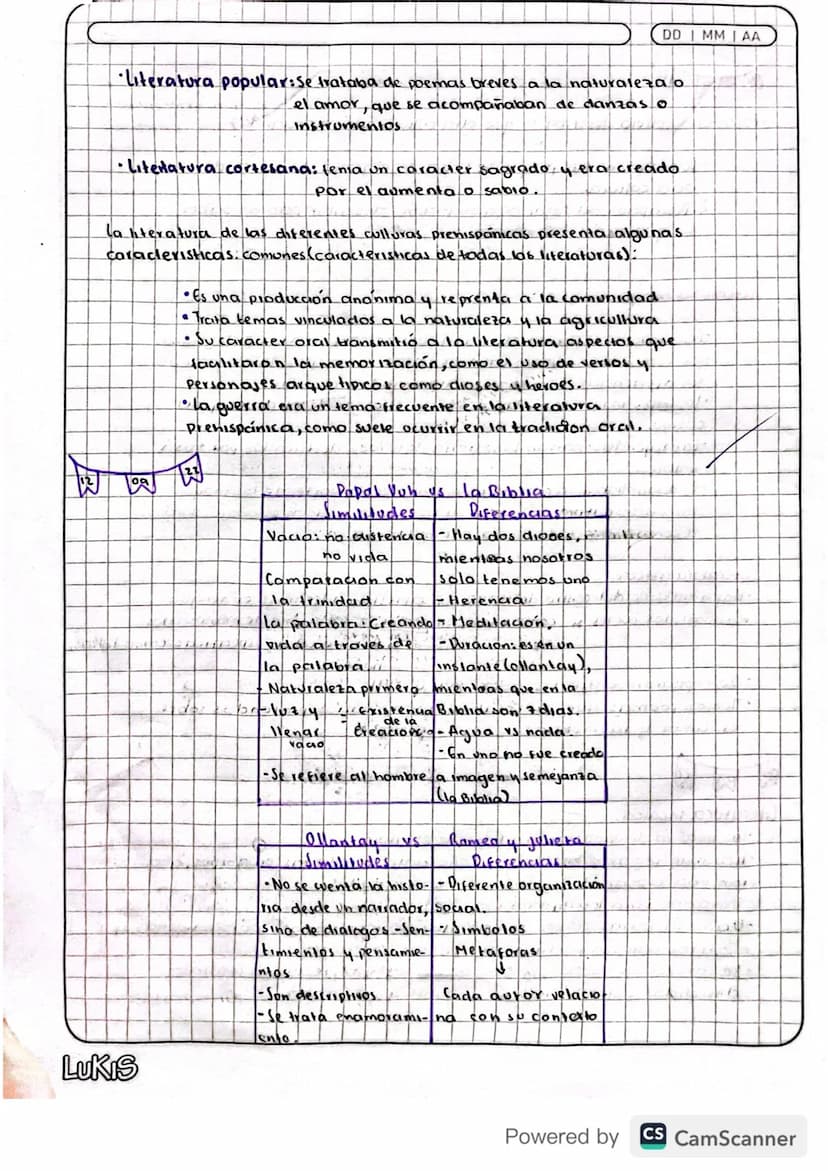 DD | MM | AA
·Literatura popular: Se trataba de poemas breves a la naturaleza o
el amor, que se acompañaban de danzas o
instrumentos
·Literatura cortesana: tenia un caracter sagrado y era creado
por el aumenta o sabio.
la literatura de las diferentes culturas prehispánicas presenta algunas
caracteristicas comunes (caracteristicas de todas las literaturas):
·Es una producción anónima y reprenta a la comunidad
·Trata temas vinculados a la naturaleza y la agricultura
·Su caracter oral transmitió a la literatura aspectos que
facilitaron la memorización, como el uso de versos y
personajes arquetipicos como dioses y héroes.
·La guerra era un tema frecuente en la literatura
prehispánica, como suele ocurrir en la tradición oral.
12 09 22
Popol Vuh vs la Biblia
Similitudes Diferencias
Vacio: no existencia - Hay dos dioses,
no vida mientras nosotros
Comparacion con solo tenemos uno
la trinidad - Herencia
la palabra: Creando - Meditación,
vida a través de - Duracion: es en un
la palabra instante (ollantay),
- Naturaleza primero mientras que en la
- luz y existencia Biblia son 7 dias.
de la
llenar creación - Agua vs nada
vacio
- En uno no fue creado
- Se refiere al hombre a imagen y semejanza
(la Biblia)
Ollantay vs Romeo y Julieta
Similitudes Diferencias
·No se cuenta la histo- - Diferente organización
ria desde un narrador, social.
sino de dialogos - Sen- - Simbolos
timientos y pensamie- Metaforas
ntos ↓
- Son descriptivos Cada autor relacio
- Se trata enamorami- na con su contexto
ento.
LUKIS
Powered by CS CamScanner